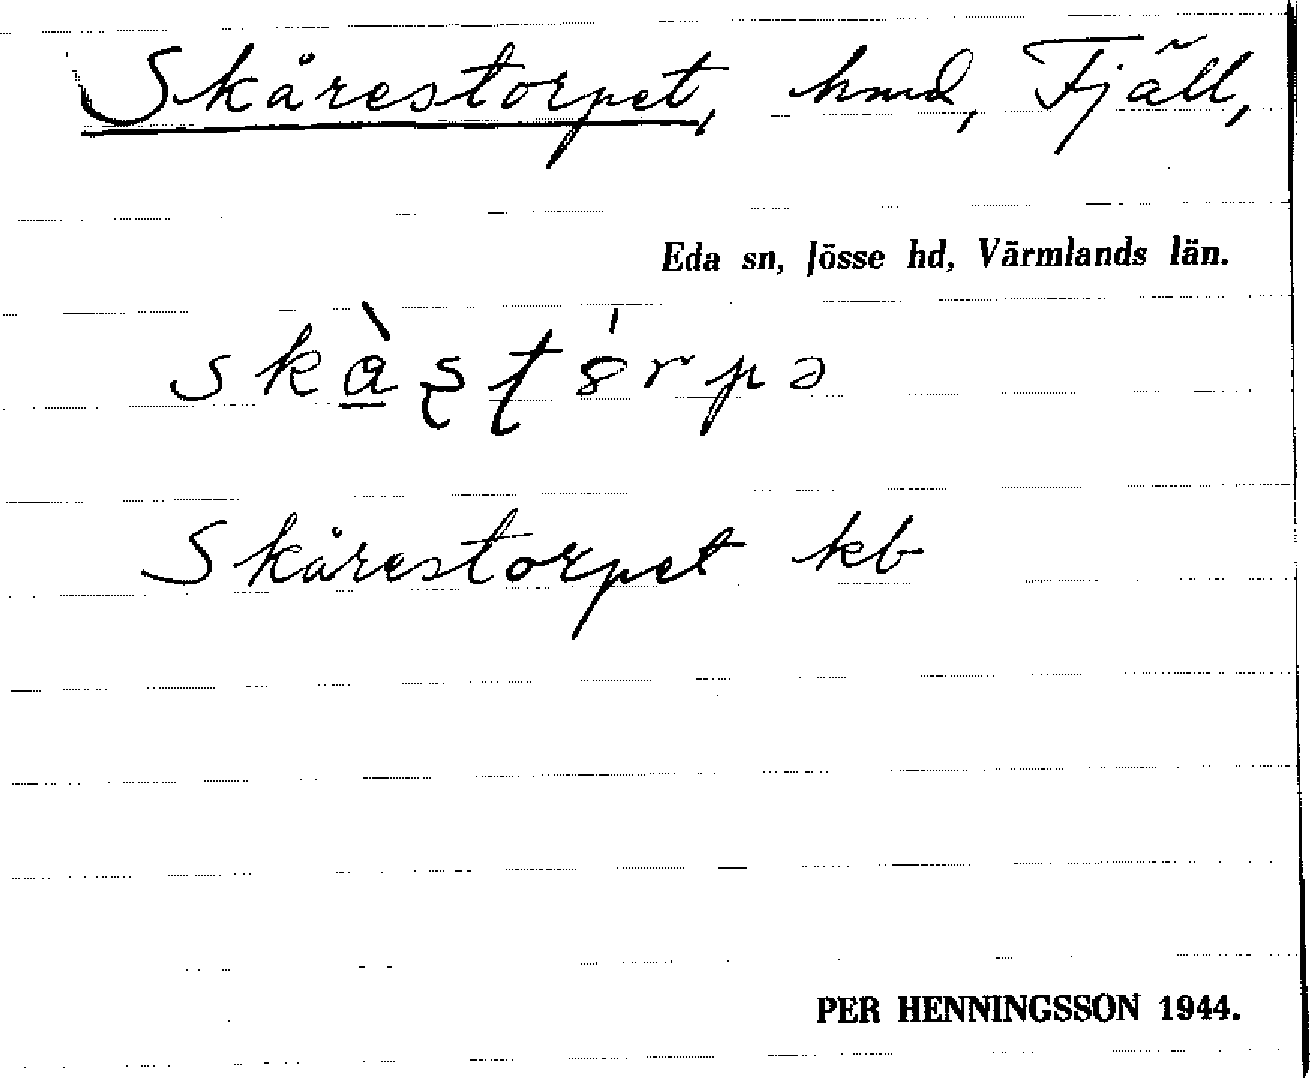 Skårestorpet, hmd, Fjäll,
Eda sn, Jösse hd, Värmlands län.
skàʂʈ8́rpə
Skårestorpet kb
PER HENNINGSSON 1944.